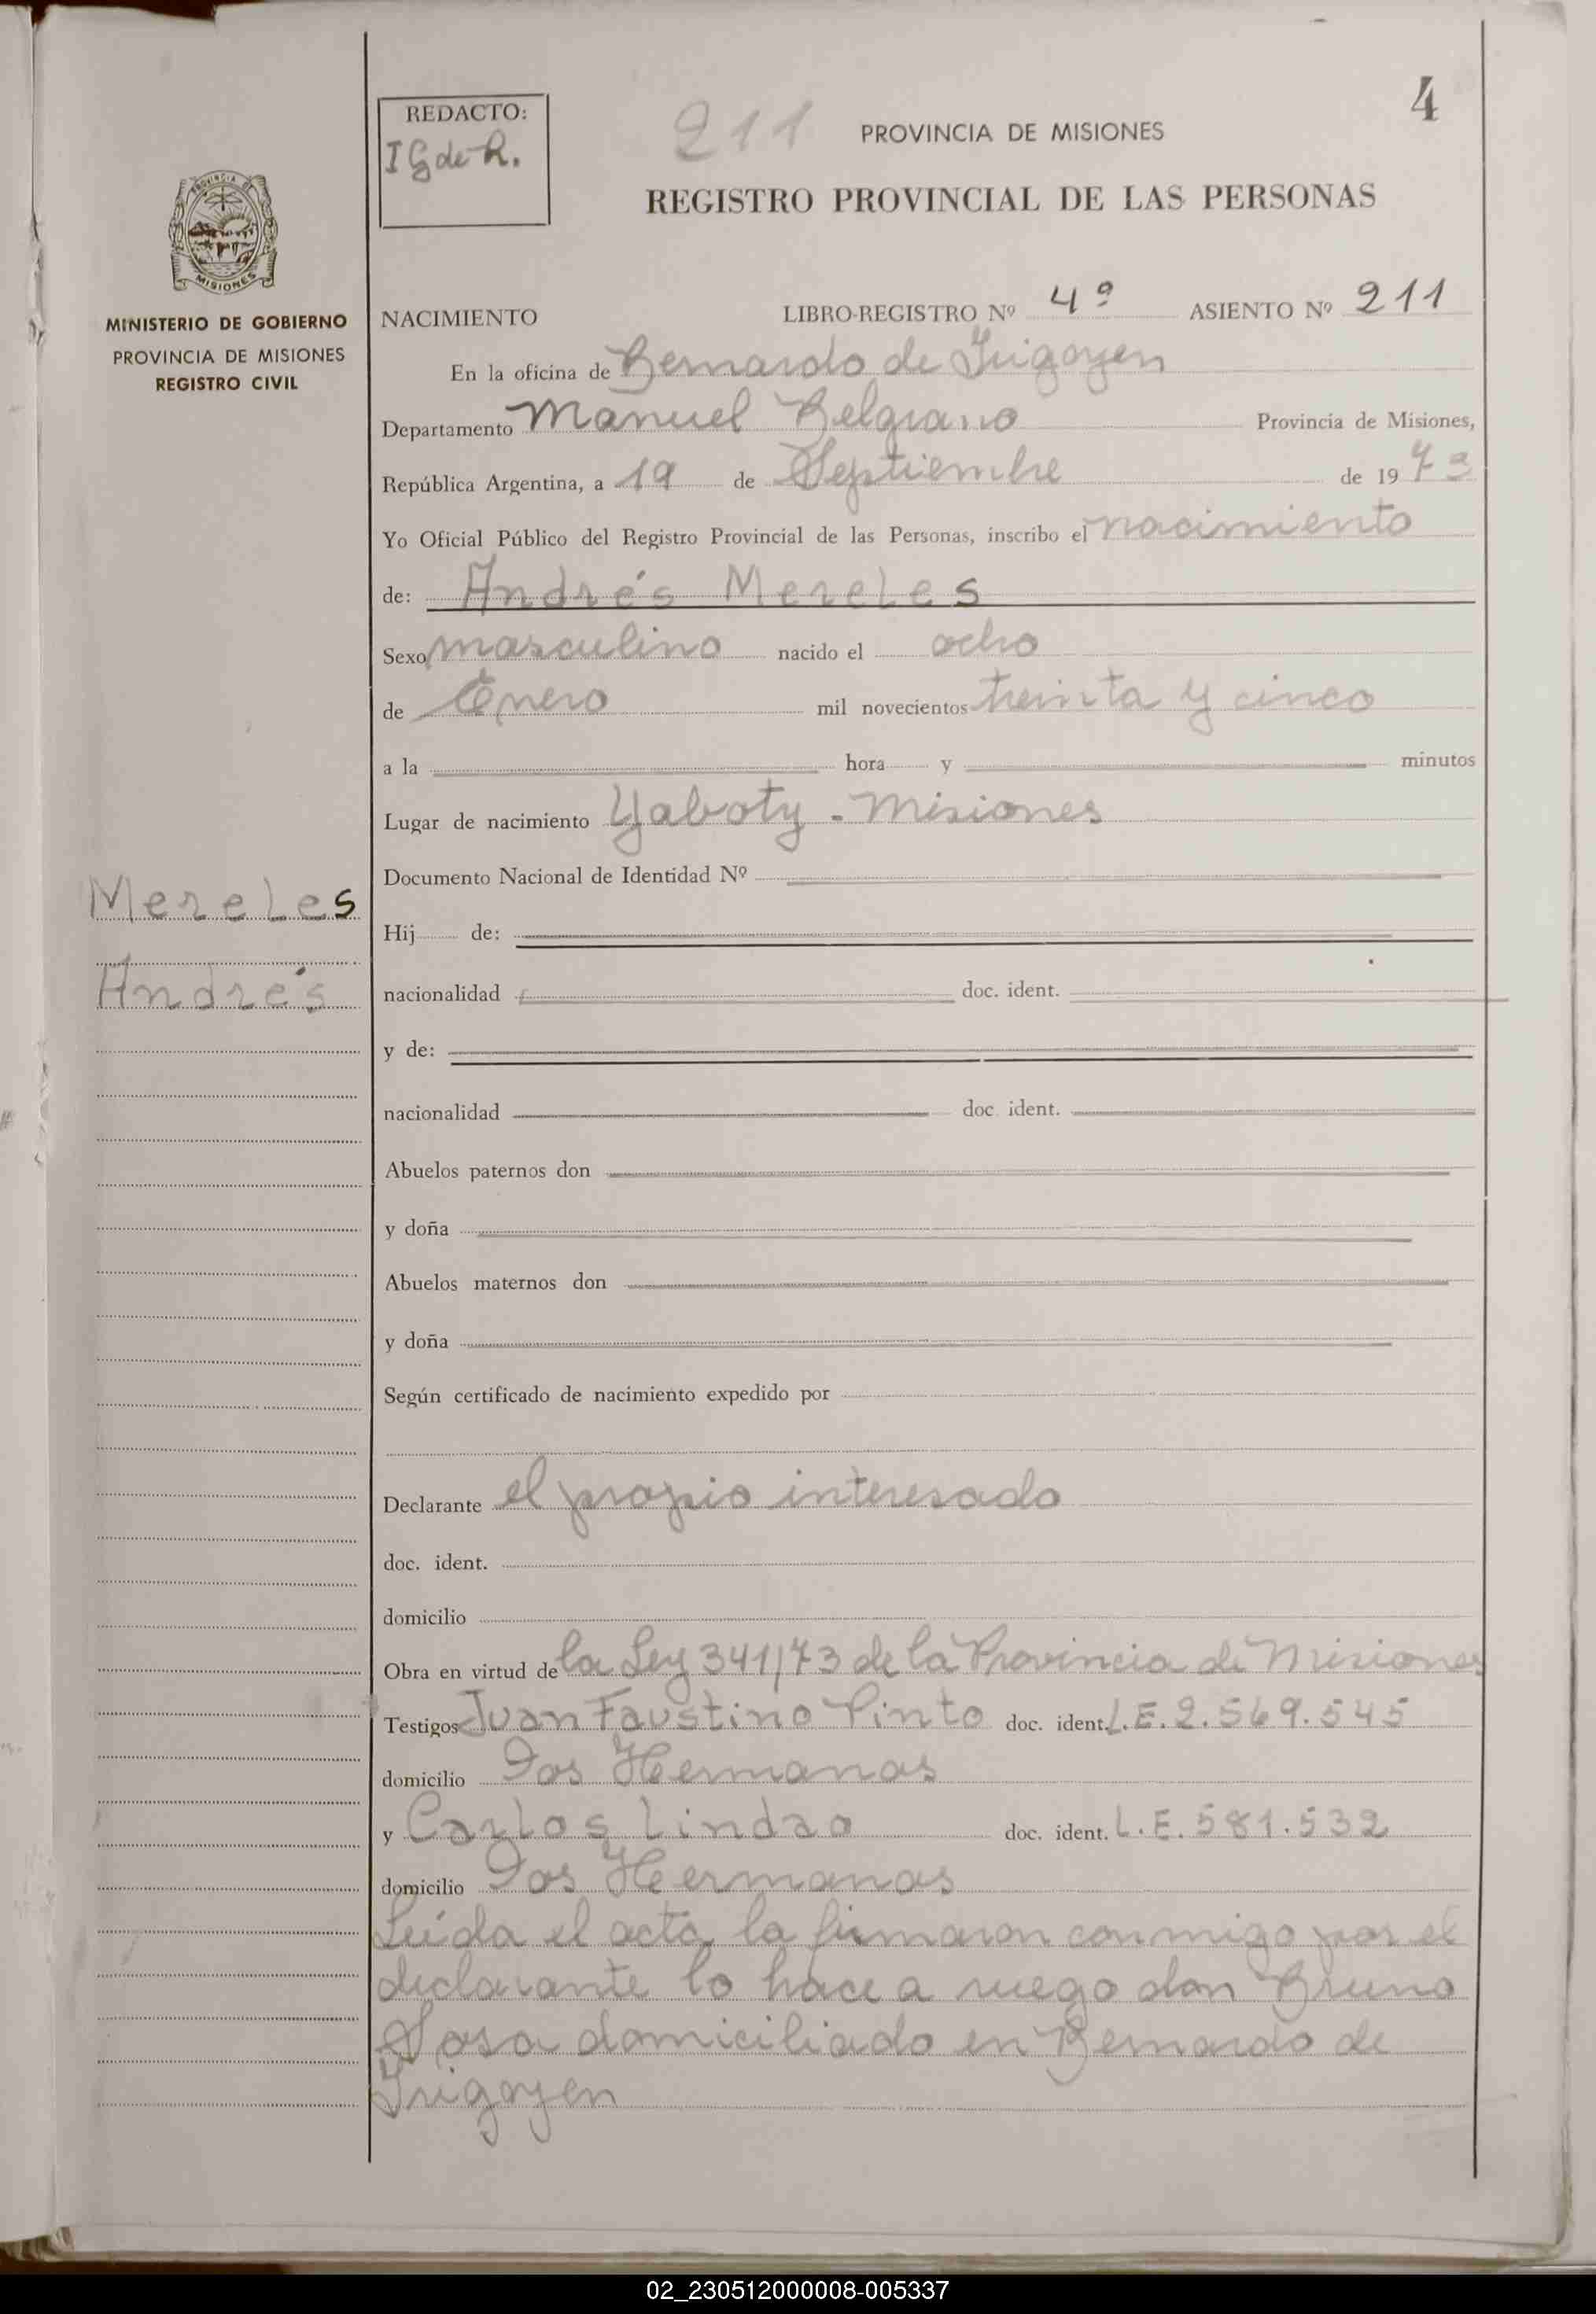 4
REDACTO:
I G de R.
211
PROVINCIA DE MISIONES
REGISTRO PROVINCIAL DE LAS PERSONAS
PROVINCIA DE
MISIONES
MINISTERIO DE GOBIERNO
PROVINCIA DE MISIONES
REGISTRO CIVIL
NACIMIENTO LIBRO-REGISTRO Nº 4º ASIENTO Nº 211
En la oficina de Bernardo de Irigoyen
Departamento Manuel Belgrano Provincia de Misiones,
República Argentina, a 19 de Septiembre de 1973
Yo Oficial Público del Registro Provincial de las Personas, inscribo el nacimiento
de: Andrés Mereles
Sexo masculino nacido el ocho
de Enero mil novecientos treinta y cinco
a la hora y minutos
Lugar de nacimiento Yaboty - Misiones
Documento Nacional de Identidad Nº
Mereles
Andrés
Hij de:
nacionalidad doc. ident.
y de:
nacionalidad doc. ident.
Abuelos paternos don
y doña
Abuelos maternos don
y doña
Según certificado de nacimiento expedido por
Declarante el propio interesado
doc. ident.
domicilio
Obra en virtud de la Ley 341/73 de la Provincia de Misiones
Testigos Juan Faustino Pinto doc. ident. L.E. 2.569.545
domicilio Dos Hermanas
y Carlos Lindao doc. ident. L.E. 581.532
domicilio Dos Hermanas
Leída el acta, la firmaron conmigo por el
declarante lo hace a ruego don Bruno
Sosa domiciliado en Bernardo de
Irigoyen
02_230512000008-005337